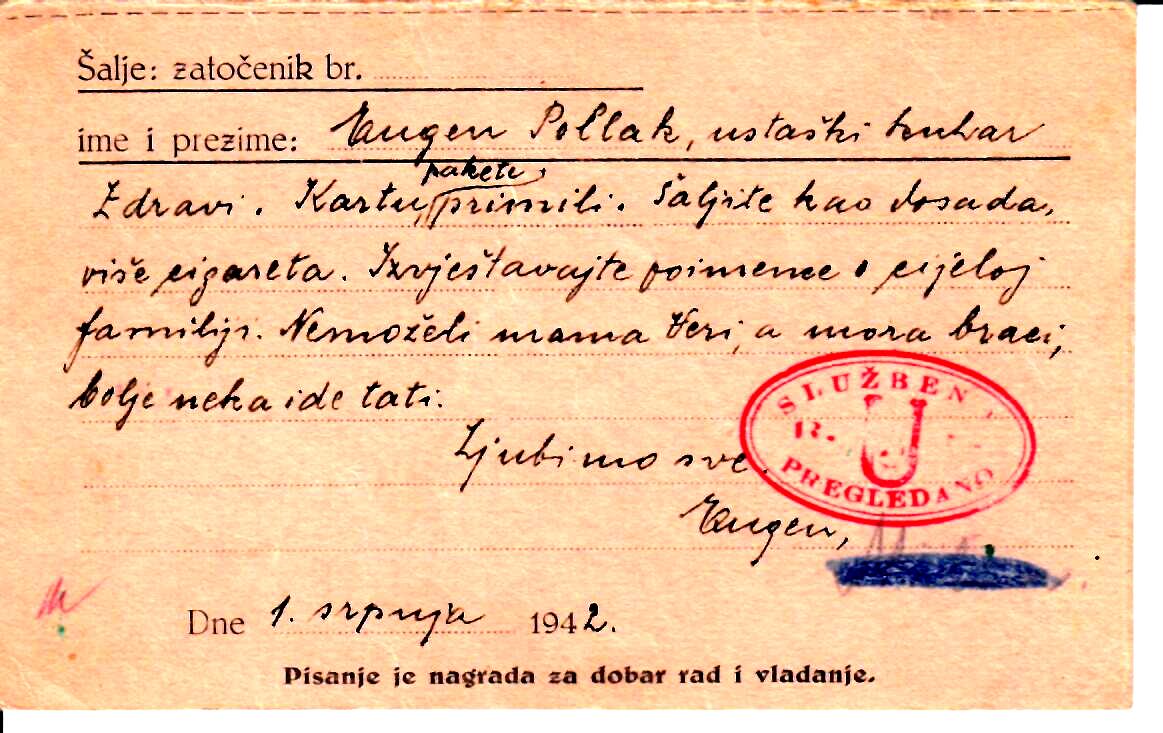 Šalje: zatočenik br.
ime i prezime: Eugen Pollak, ustaški kuhar
pakete,
Zdravi. Kartu, primili. Šaljite kao dosada,
više cigareta. Izvještavajte poimence o cijeloj
familiji. Nemoželi mama Veri, a mora braci,
bolje neka ide tati.
Ljubimo sve.
Eugen,
SLUŽBEN
U
PREGLEDANO
Dne 1. srpnja 1942.
Pisanje je nagrada za dobar rad i vladanje.